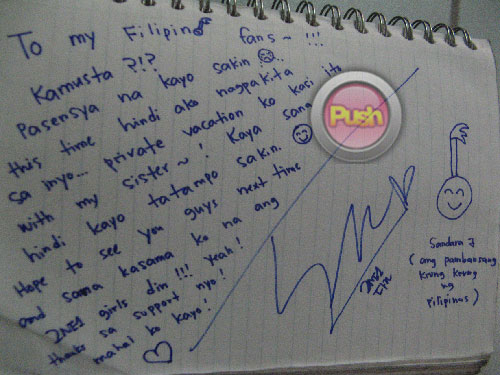 To my Filipino fans~ !!!
Kamusta ?!?
Pasensya na kayo sakin
this time hindi ako nagpakita
sa inyo... private vacation ko kasi ito
with my sister~! Kaya sana
hindi kayo tatampo sakin.
Hope to see you guys next time
and sana kasama ko na ang
2NE1 girls din!!! Yeah!
thanks sa support nyo!
mahal ko kayo!
Push
2NE1
Sandara
( ang pambansang
krung krung
ng
Pilipinas )